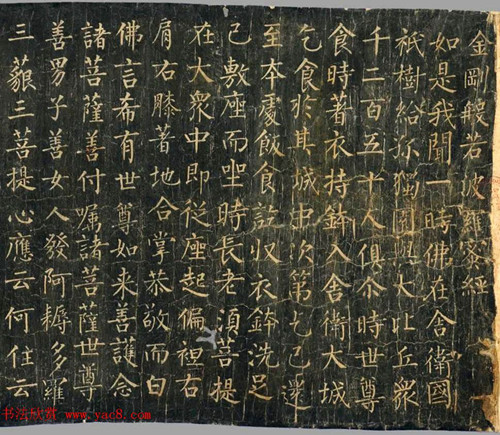 金剛般若波羅蜜經
如是我聞一時佛在舍衛國
祇樹給孤獨園與大比丘眾
千二百五十人俱尒時世尊
食時著衣持鉢入舍衛大城
乞食於其城中次第乞已還
至本處飯食訖収衣鉢洗足
已敷座而坐時長老須菩提
在大眾中即從座起偏袒右
肩右膝著地合掌恭敬而白
佛言希有世尊如来善護念
諸菩薩善付囑諸菩薩世尊
善男子善女人發阿耨多羅
三藐三菩提心應云何住云
书法欣赏 www.yac8.com